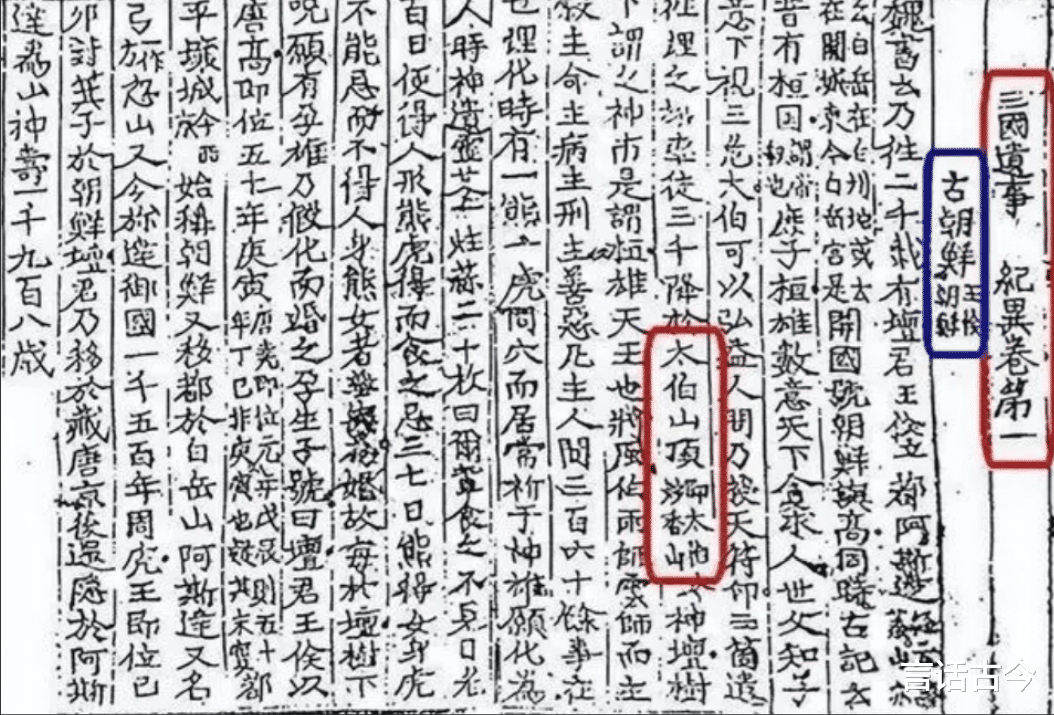 三國遺事 紀異卷第一
古朝鮮 王儉朝鮮
魏書云乃往二千載有壇君王儉立都阿斯達
云白岳在白州地或云在開城東今白岳宮是開國號朝鮮與高同時古記云
昔有桓因謂帝釋也庶子桓雄數意天下貪求人世父知子
意下視三危太伯可以弘益人間乃授天符印三箇遣
往理之雄率徒三千降於太伯山頂即太伯今妙香山神壇樹
下謂之神市是謂桓雄天王也將風伯雨師雲師而主
穀主命主病主刑主善惡凡主人間三百六十餘事在
世理化時有一熊一虎同穴而居常祈于神雄願化為
人時神遺靈艾一炷蒜二十枚曰爾輩食之不見日光
百日便得人形熊虎得而食之忌三七日熊得女身虎
不能忌而不得人身熊女者無與為婚故每於壇樹下
呪願有孕雄乃假化而婚之孕生子號曰壇君王儉以
唐高即位五十年庚寅唐堯即位元年戊辰則五十年丁巳非庚寅也疑其未實都
平壤城今西始稱朝鮮又移都於白岳山阿斯達又名
弓忽山又今旀達御國一千五百年周虎王即位己
卯封箕子於朝鮮壇君乃移於藏唐京後還隱於阿斯
達為山神壽一千九百八歲
言话古今